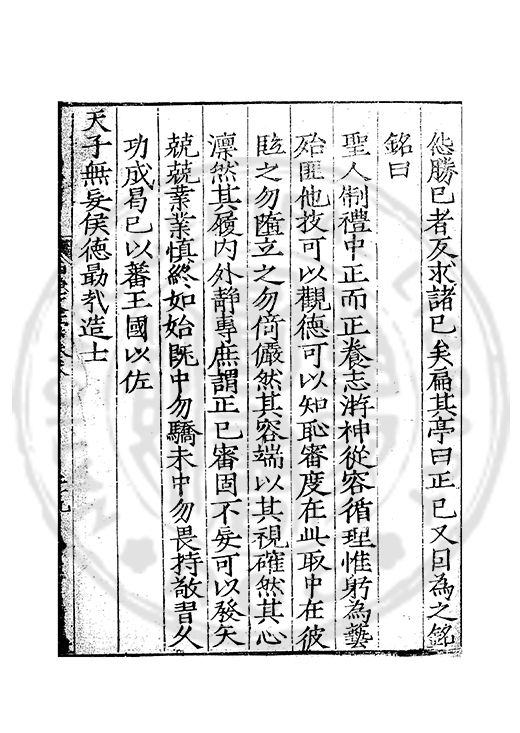 怨勝已者反求諸已矣扁其亭曰正已又因為之銘
銘曰
聖人制禮中正而正養志游神從容循理惟躬為藝
殆匪他技可以觀德可以知恥審度在此取中在彼
臨之勿墮立之勿倚儼然其容端以其視確然其心
凛然其履内外静專庶謂正已審固不妄可以發矢
兢兢業業慎終如始既中勿驕未中勿畏持敬習久
功成曷已以蕃王國以佐
天子無妄侯德勗哉造士